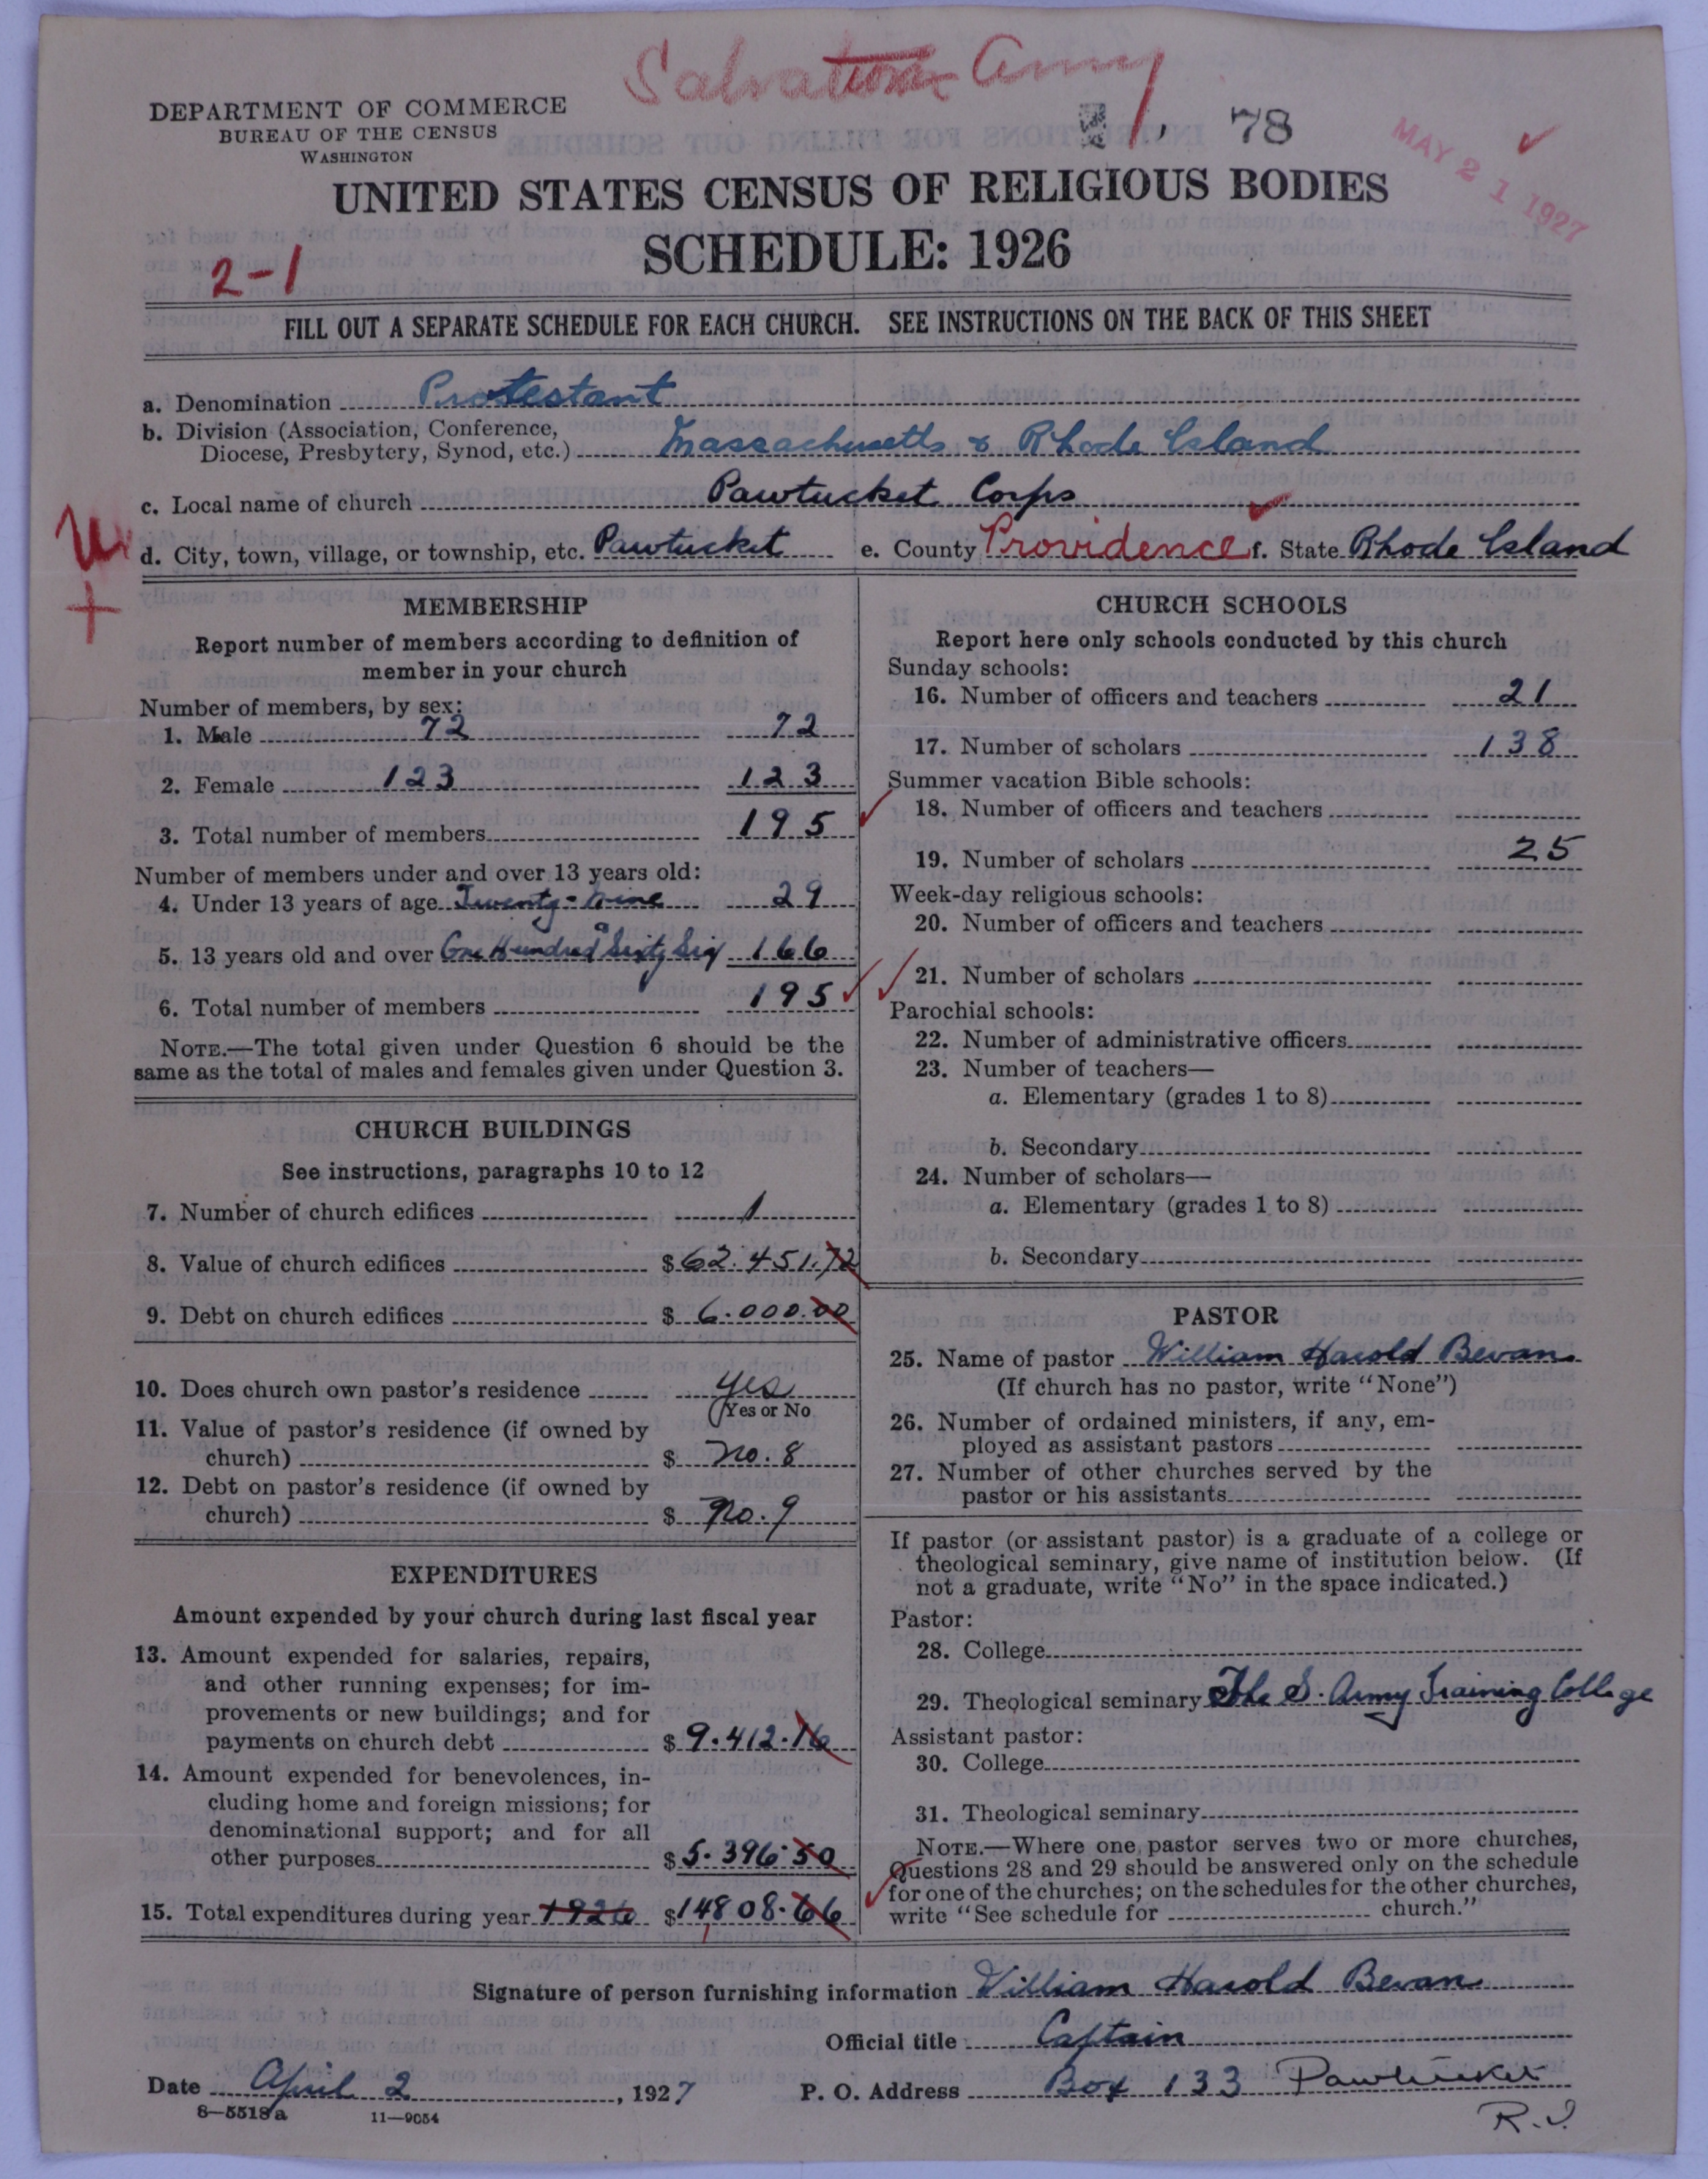 Salvation Army
DEPARTMENT OF COMMERCE
BUREAU OF THE CENSUS
WASHINGTON
1, 78
MAY 21 1927
UNITED STATES CENSUS OF RELIGIOUS BODIES
SCHEDULE: 1926
2-1
FILL OUT A SEPARATE SCHEDULE FOR EACH CHURCH. SEE INSTRUCTIONS ON THE BACK OF THIS SHEET
a. Denomination Protestant
b. Division (Association, Conference,
Diocese, Presbytery, Synod, etc.) Massachusetts & Rhode Island
c. Local name of church Pawtucket Corps
d. City, town, village, or township, etc. Pawtucket e. County Providence f. State Rhode Island
MEMBERSHIP
Report number of members according to definition of
member in your church
Number of members, by sex:
1. Male 72 72
2. Female 123 123
3. Total number of members 195
Number of members under and over 13 years old:
4. Under 13 years of age Twenty-nine 29
5. 13 years old and over One Hundred & Sixty Six 166
6. Total number of members 195
NOTE.—The total given under Question 6 should be the
same as the total of males and females given under Question 3.
CHURCH BUILDINGS
See instructions, paragraphs 10 to 12
7. Number of church edifices 1
8. Value of church edifices $62.451.72
9. Debt on church edifices $6.000.00
10. Does church own pastor's residence yes
(Yes or No
11. Value of pastor's residence (if owned by
church) $ No. 8
12. Debt on pastor's residence (if owned by
church) $ No. 9
EXPENDITURES
Amount expended by your church during last fiscal year
13. Amount expended for salaries, repairs,
and other running expenses; for im-
provements or new buildings; and for
payments on church debt $9.412.16
14. Amount expended for benevolences, in-
cluding home and foreign missions; for
denominational support; and for all
other purposes $5.396.50
15. Total expenditures during year 1926 $14808.66
CHURCH SCHOOLS
Report here only schools conducted by this church
Sunday schools:
16. Number of officers and teachers 21
17. Number of scholars 138
Summer vacation Bible schools:
18. Number of officers and teachers
19. Number of scholars 25
Week-day religious schools:
20. Number of officers and teachers
21. Number of scholars
Parochial schools:
22. Number of administrative officers
23. Number of teachers—
a. Elementary (grades 1 to 8)
b. Secondary
24. Number of scholars—
a. Elementary (grades 1 to 8)
b. Secondary
PASTOR
25. Name of pastor William Harold Bevan
(If church has no pastor, write "None")
26. Number of ordained ministers, if any, em-
ployed as assistant pastors
27. Number of other churches served by the
pastor or his assistants
If pastor (or assistant pastor) is a graduate of a college or
theological seminary, give name of institution below. (If
not a graduate, write "No" in the space indicated.)
Pastor:
28. College
29. Theological seminary The S. Army Training College
Assistant pastor:
30. College
31. Theological seminary
NOTE.—Where one pastor serves two or more churches,
Questions 28 and 29 should be answered only on the schedule
for one of the churches; on the schedules for the other churches,
write "See schedule for church."
Signature of person furnishing information William Harold Bevan
Official title Captain
Date April 2, 1927 P. O. Address Box 133 Pawtucket
R.I.
8—5518a 11—9054